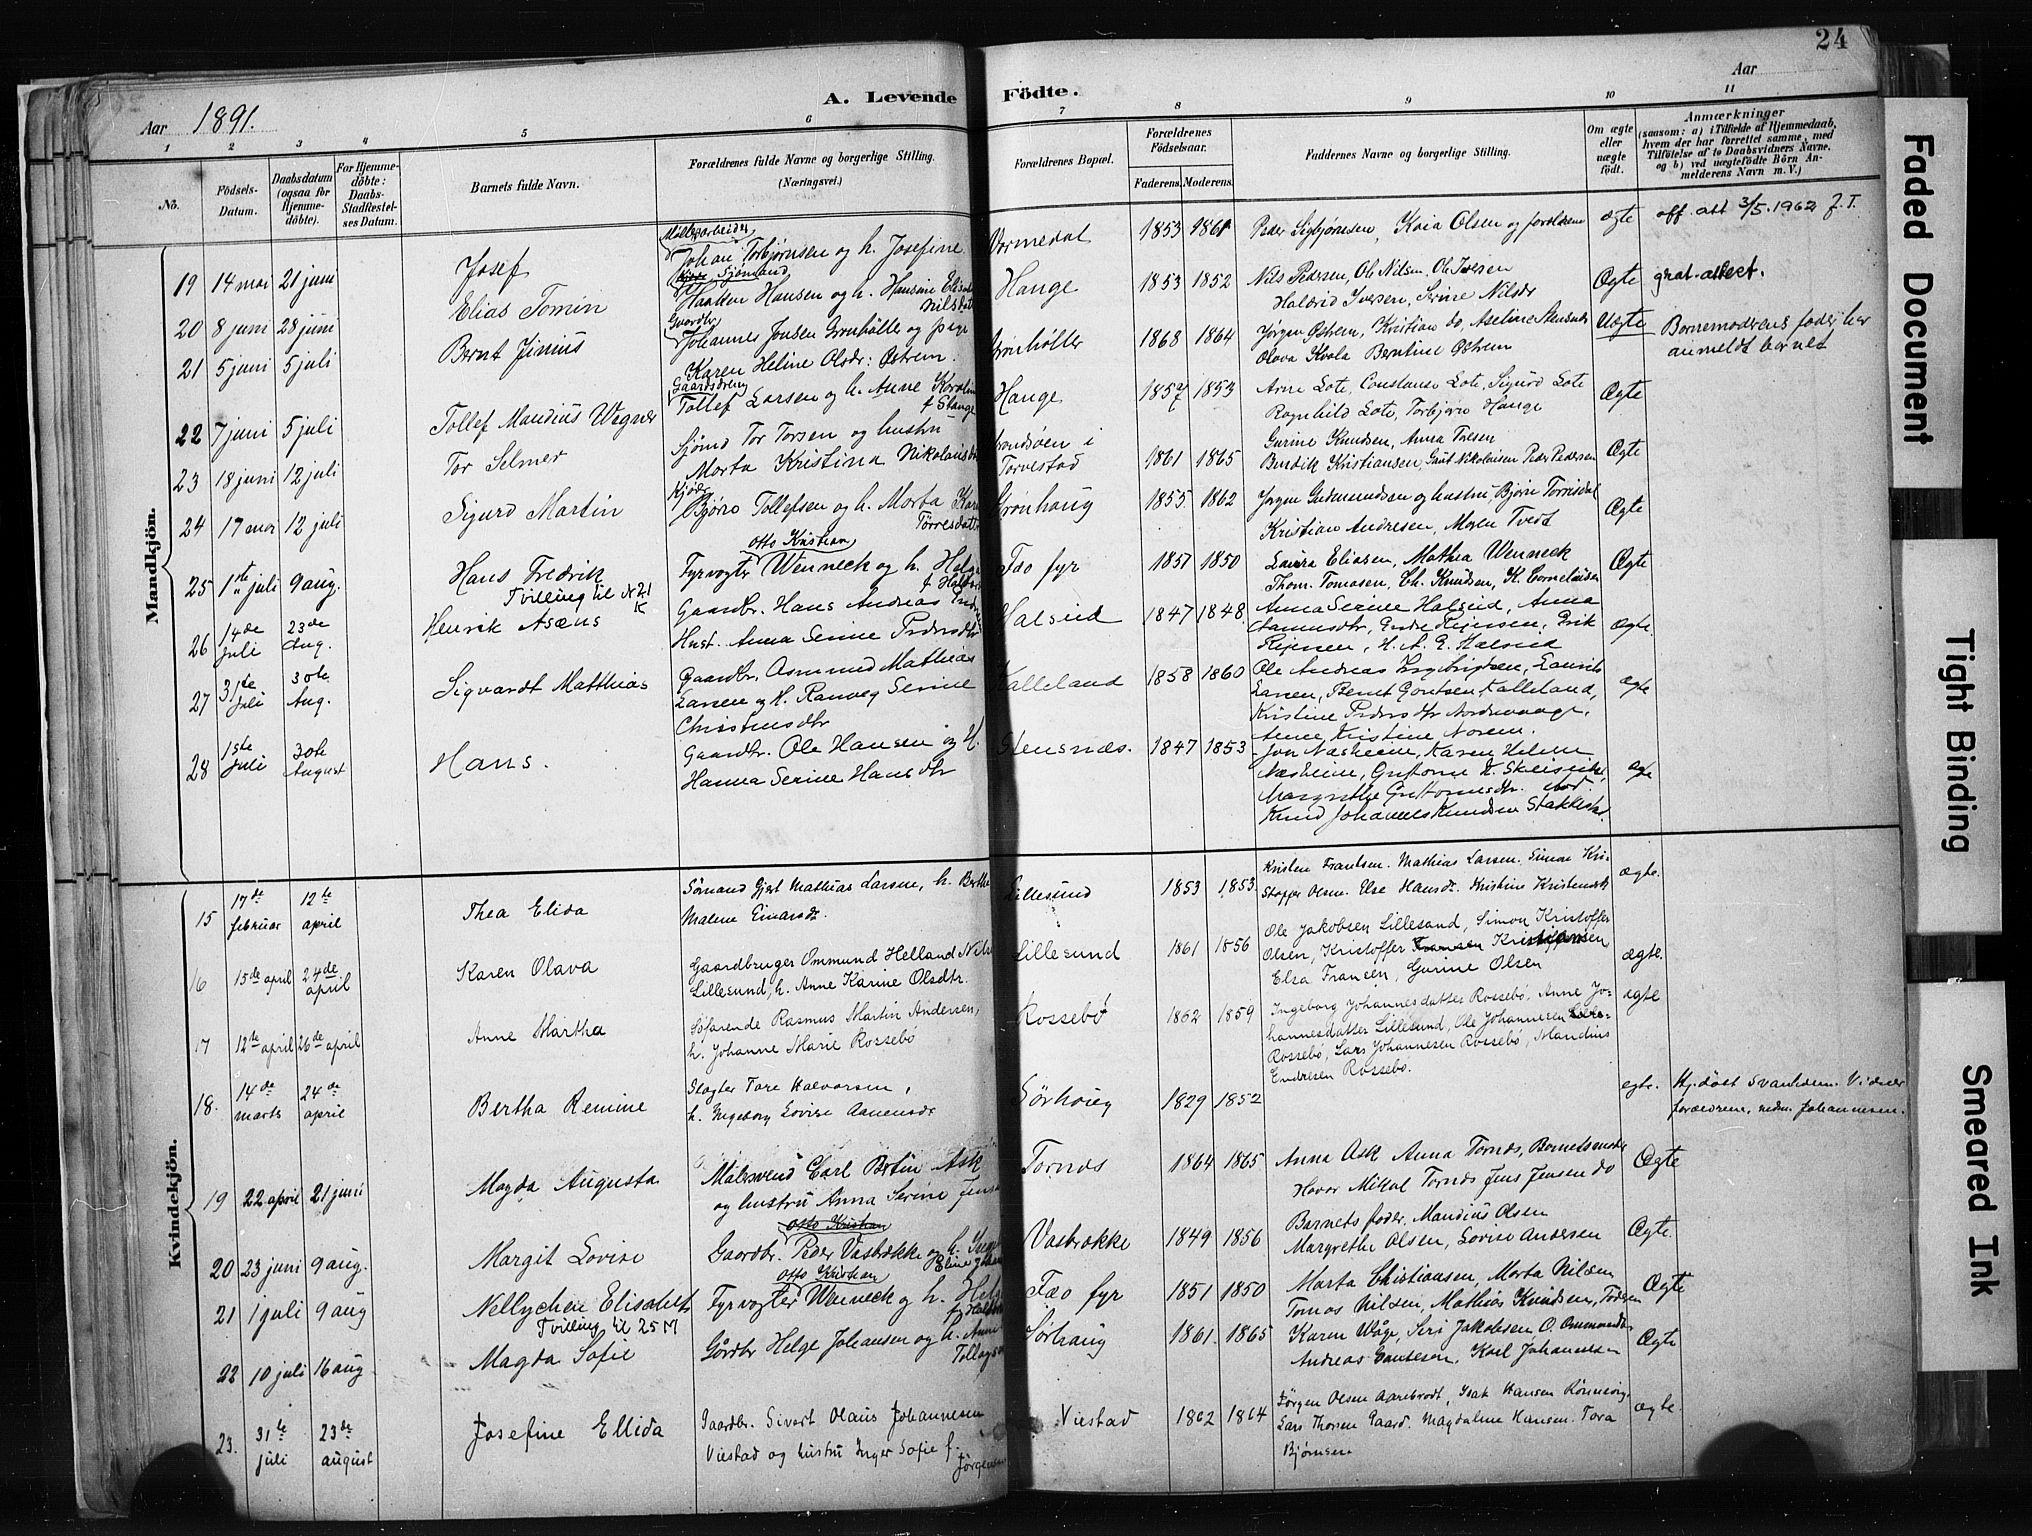 24
Aar 1891.
A. Levende Födte.
Aar
1 2 3 4 5 6 7 8 9 10 11
No.
Födsels-Datum.
Daabsdatum (ogsaa for Hjemme-döbte).
For Hjemme-döbte: Daabs-Stadfæstel-ses Datum.
Barnets fulde Navn.
Forældrenes fulde Navne og borgerlige Stilling. (Næringsvei.)
Forældrenes Bopæl.
Forældrenes Födselsaar.
Faderens. Moderens.
Faddernes Navne og borgerlige Stilling.
Om ægte eller uægte födt.
Anmærkninger
(saasom: a) i Tilfælde af Hjemmedaab, hvem der har forrettet samme, med Tilföielse af to Daabsvidners Navne, og b) ved uægtefödte Börn An-melderens Navn m. V.)
Mandkjön.
19 14 mai 21 juni Josef
Johan Torbjørnsen og h. Josefine
Vormedal 1853 1861
Peder Sigbjørnsen, Kaia Olsen og forældrene
ægte off. att 3/5.1962 J.T.
20 8 juni 28 juni Elias Tomin
Sjømand
Haaken Hansen og h. Hansine
Hauge 1853 1852
Nils Pedersen, Ole Nilsen, Ole Iversen
Iversen, Serine Nilsdr
Ægte
21 5 juni 5 juli Bernt Jinius
Gaardbr
Johannes Jonsen Grønhølle og pige
Karen Heline Olsdr: Østrem.
Grønhølle 1868 1864
Jørgen Østrem, Kristian do,
Olava Kvala Berntine Østrem
Uægte Barnemoderens fader har
anmeldt barnet
22 7 juni 5 juli Tollef Mandius Wegner
Gaardsdreng
Tollef Larsen og h. Anne
f Stange
Hauge 1857 1853
Arne Lote, Constanse Lote, Sigurd Lote
Ragnhild Lote, Torbjørn Hauge
Ægte
23 18 juni 12 juli Tor Selmer
Sjømd Tor Torsen og hustru
Marta Kristina
i Torvestad 1861 1865
Gurine Knudsen, Anna
Bendik Kristiansen, Gaut Nikolaisen Peder Pedersen
Ægte
24 17 mai 12 juli Sigurd Martin
Bjørn Tollefsen og h. Marta
Torresdatter
Grønhaug 1855 1862
Jørgen Gudmundsen og hustru, Bjørn
Kristian Andresen, Maren Tvedt
Ægte
25 1ste juli 9 aug. Hans Fredrik
Tvilling til N 21 K
Otto Kristian
Fyrvogter Wenneck og h.
Fæø fyr 1851 1850
Laura Eliasen, Mathea Wenneck
Thom. Tomasen, Ch. Knudsen, K. Cornelinsen
Ægte
26 14de juli 23de Aug. Henrik Asæus
Gaardbr. Hans Andreas
Hust. Anna Serine Pedersdtr
Halseid 1847 1848
Anna Serine Halseid, Anna
Erik
H. A. E. Halseid
ægte.
27 31te juli 30te Aug. Sigvardt Matthias
Gaardbr. Asmund Mathias
Larsen og H. Ranveg Serine
Christensdtr
Kalleland 1858 1860
Ole Andreas Lauritz
Larsen, Bernt Gautsen Kalleland,
Kristine Pedersdtr
Anne Kristine Norem.
ægte
28 1ste juli 30te August Hans.
Gaardbr. Ole Hansen og H.
Hanna Serine Hansdtr
Stensnæs. 1847 1853
Jon Næsheim, Karen Helene
Næsheim,
Knud Johannes Knudsen
ægte
Kvindekjön.
15 17de februar 12te april Thea Elida
Sømand Gjert Mathias Larsen, h. Berthe
Malene Einarsdr
Lillesund 1853 1853.
Kristen Frantsen. Mathias Larsen. Simon Kri-
stoffer Olsen. Else Hansdr. Kristine Kristensdr
ægte.
16 15de april 24de april Karen Olava
Gaardbruger Ommund Helland
Lillesund, h. Anne Karine Olsdtr.
Lillesund 1861 1856
Ole Jakobsen Lillesund, Simon Kristoffer
Olsen, Kristoffer Fransen Kristiansen
Elsa Fransen, Gurine Olsen
ægte.
17 12te april 26de april Anne Martha
Søfarende Rasmus Martin Andersen,
h. Johanne Marie Rossebø
Rossebø 1862 1859
Ingeborg Johannesdatter Rossebø, Anne Jo-
hannesdatter Lillesund, Ole Johannesen
Rossebø, Lars Johannesen Rossebø, Mandius
Endresen Rossebø.
ægte
18. 14de marts 24de april Bertha Remine
Slagter Tore Halvorsen,
h. Ingeborg Lovise Aanensdr
Sørhoug 1829 1852
ægte. Hj.døbt Vidner
forældrene, Johannesen.
19 22 april 21 juni Magda Augusta
Malersvend Carl Bertin Ask
og hustru Anna Serine
Tornæs 1864 1865
Anna Ask Anna Tornæs, Barnets moder
Havor Mikal Tornæs Jens Jensen do
Ægte
20 23 juni 9 aug. Margit Lovise
Otto Kristian
Gaardbr. Peder Vasbrække og h.
Vasbrække 1849 1856
Barnets fader, Mandius Olsen
Margrethe Olsen, Lovise Andersen
Ægte.
21 1 juli 9 aug Nellychen Elisabeth
Tvilling til 25 M
Otto Kristian
Fyrvogter Wenneck og h.
Fæø fyr 1851 1850
Marta Christiansen, Marta Nilsen
Tomas Nilsen, Mathias Knudsen,
Ægte
22 10 juli 16 aug Magda Sofie
Gårdbr Helge Johansen og h. Anne
Sørhaug 1861. 1865
Karen Våge, Seri Jakobsen, O.
Andreas Gautesen, Karl Johannesen
Ægte
23. 31te juli 23de august Josefine Ellida
Gaardbr. Sivert Olaus Johannesen
Viestad og hustru Inger Sofie f.
Jørgensen
Viestad 1862 1864
Jørgen Olsen Aarebrodt, Isak Hansen
Lars Thorsen Gaard. Magdalene Hansen. Tora
Bjørnsen
ægte.
Faded Document
Tight Binding
Smeared Ink